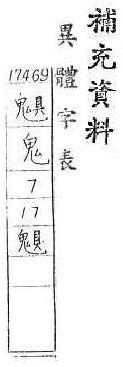 補充資料
異體字表
17469
鬼
7
17